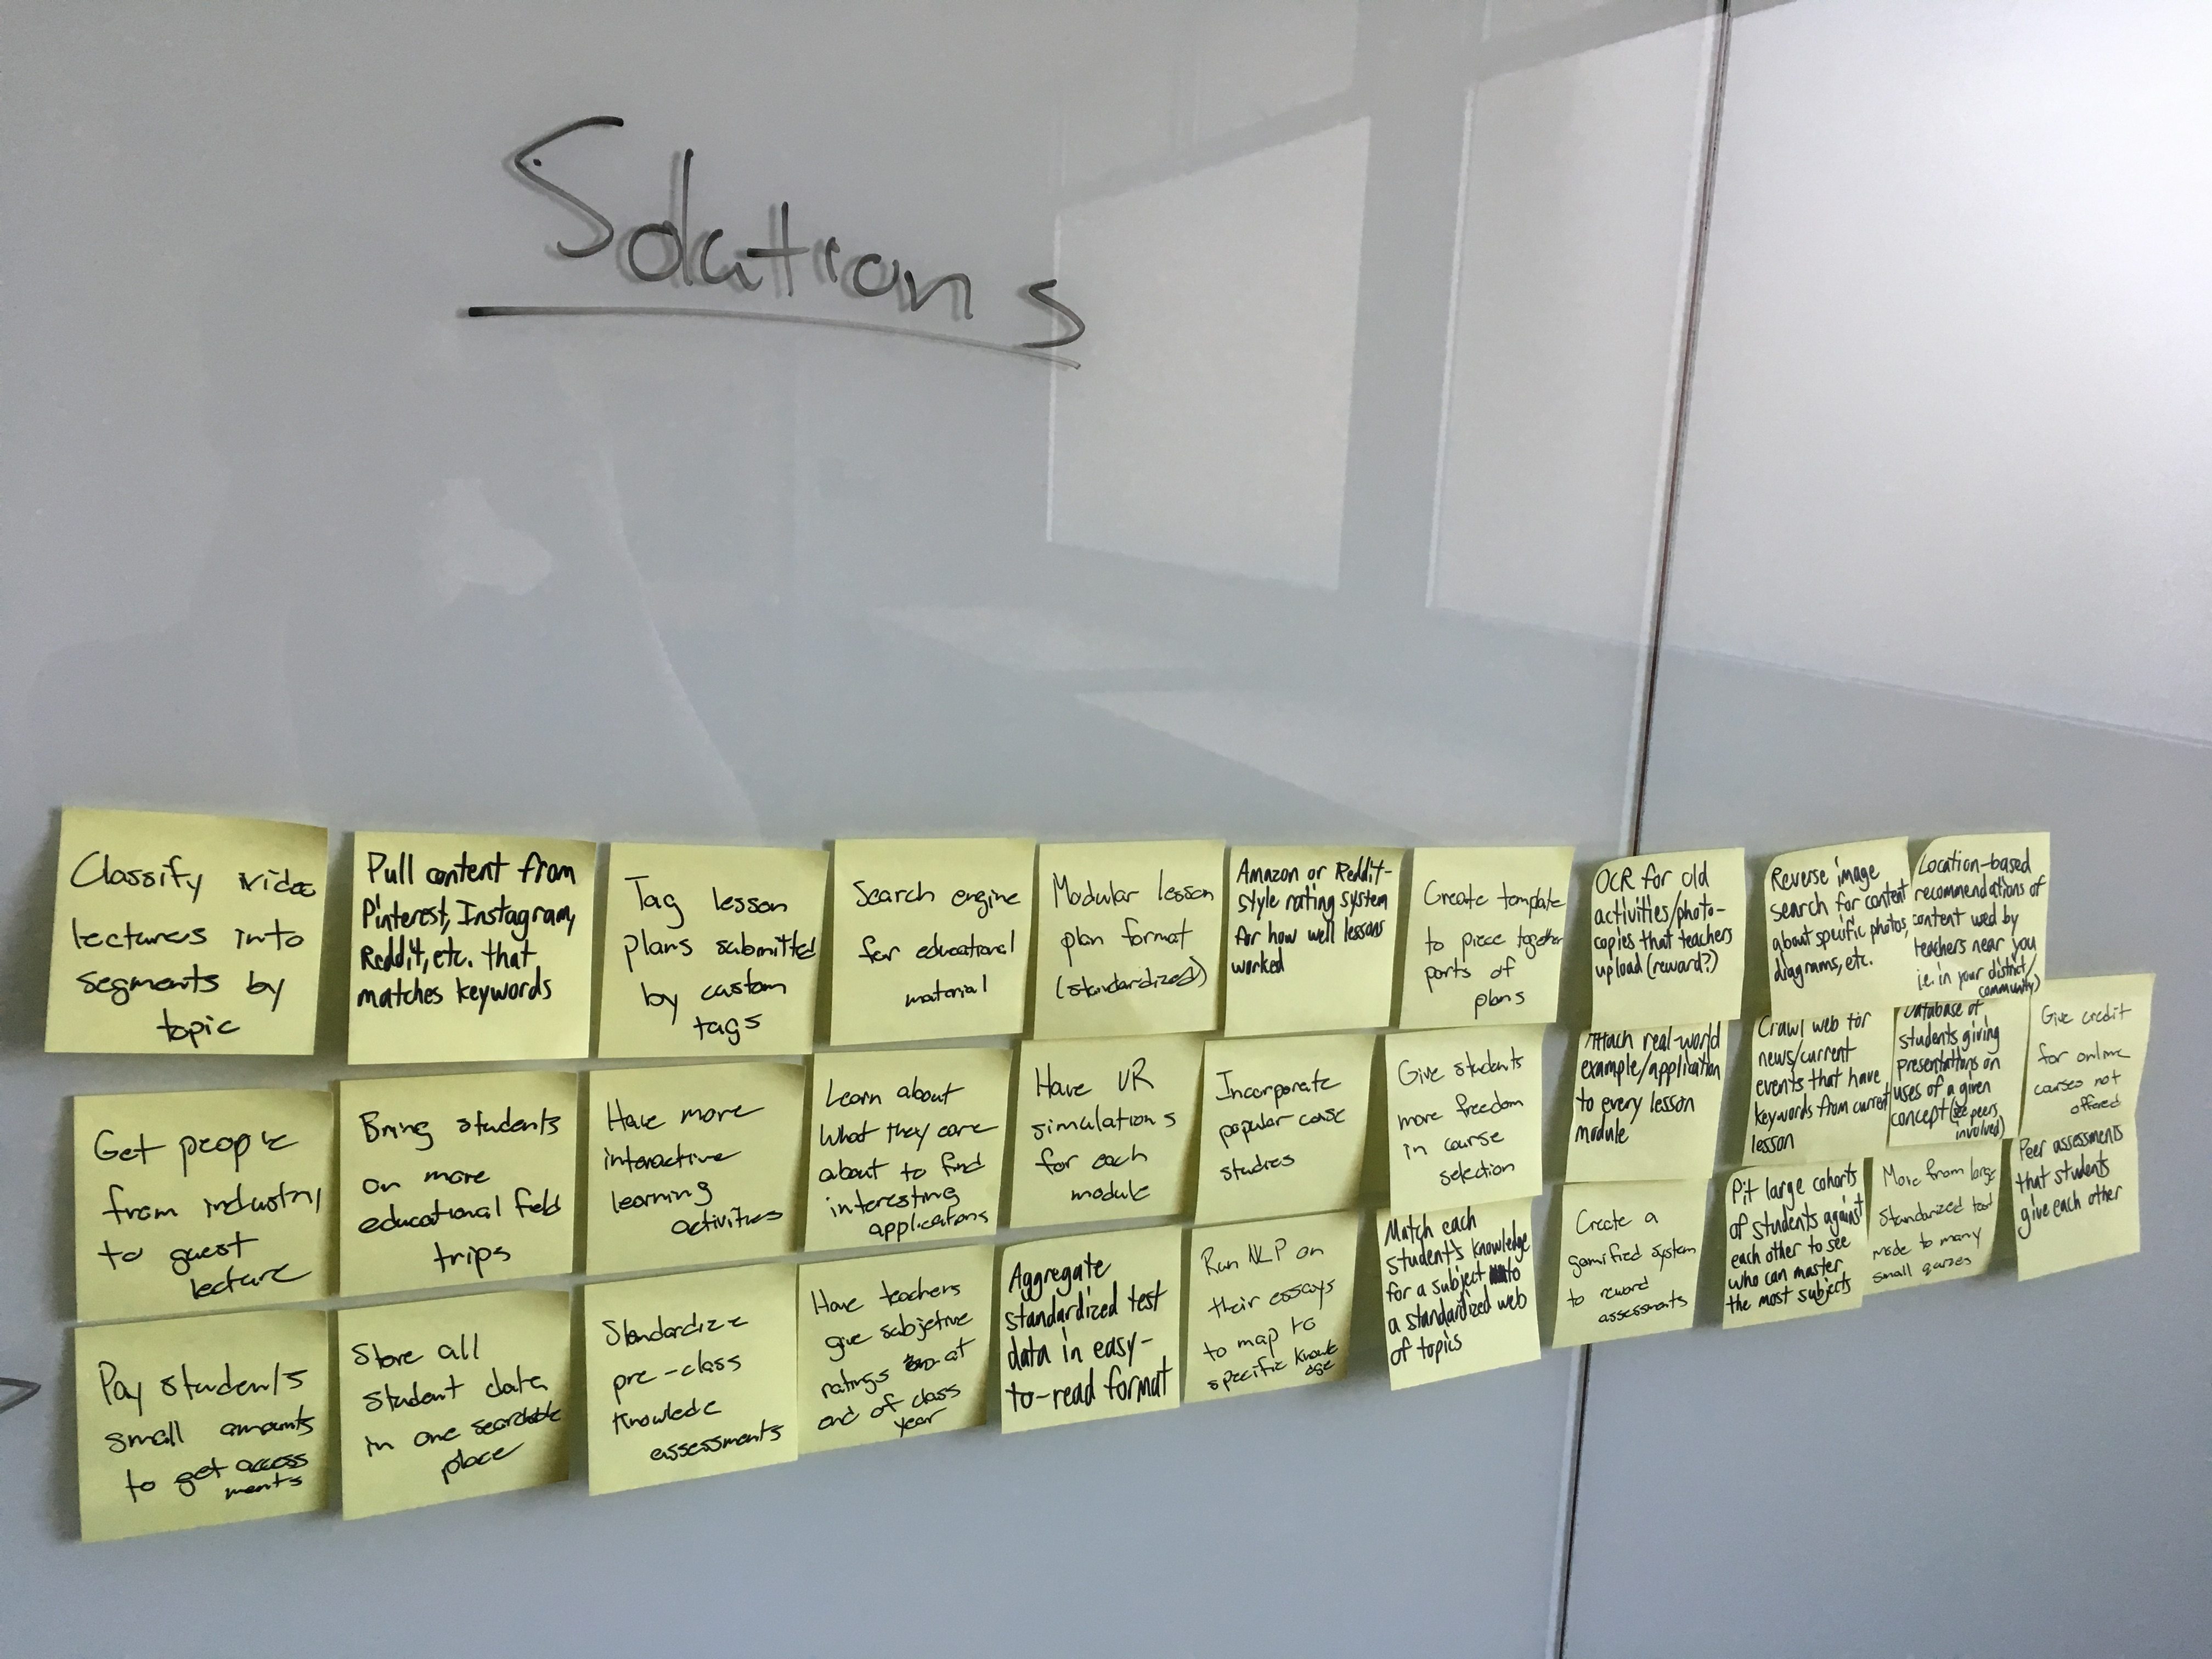 Solutions
Classify video
lectures into
segments by
topic
Pull content from
Pinterest, Instagram,
Reddit, etc. that
matches keywords
Tag lesson
plans submitted
by custom
tags
Search engine
for educational
material
Modular lesson
plan format
(standardized)
Amazon or Reddit-
style rating system
for how well lessons
worked
Create template
to piece together
parts of
plans
OCR for old
activities/photo-
copies that teachers
upload (reward?)
Reverse image
search for content
about specific photos,
diagrams, etc.
Location-based
recommendations of
content used by
teachers near you
i.e. in your district/
community)
Get people
from industry
to guest
lecture
Bring students
on more
educational field
trips
Have more
interactive
learning
activities
Learn about
what they care
about to find
interesting
applications
Have VR
simulations
for each
module
Incorporate
popular case
studies
Give students
more freedom
in course
selection
Attach real-world
example/application
to every lesson
module
Crawl web for
news/current
events that have
keywords from current
lesson
Database of
students giving
presentations on
uses of a given
concept (see peers
involved)
Give credit
for online
courses not
offered
Pay students
small amounts
to get access
ments
Store all
student data
in one searchable
place
Standardize
pre-class
knowlede
assessments
Have teachers
give subjetive
ratings at
end of class
year
Aggregate
standardized test
data in easy-
to-read format
Run NLP on
their essays
to map to
specific knowle
dge
Match each
student's knowledge
for a subject to
a standardized web
of topics
Create a
gamified system
to reward
assessments
Pit large cohorts
of students against
each other to see
who can master
the most subjects
Move from large
standarized test
mode to many
small quizes
Peer assessments
that students
give each other